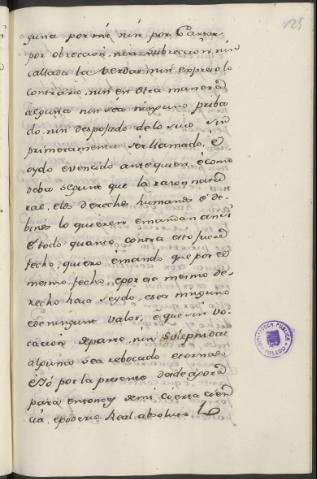 125
guna por mi, nin por Cartas
por obrecion, nin subrecion, nin
callada la verdad, nin espreso lo
contrario, nin en otra manera
alguna non sea ninguno priba
do, nin despojado de lo suio sin
primeramente ser llamado, e
oydo e vencido ante quien, e como
deba segunt que la razon natu
ral, e los derechos humanos e de
bines lo quieren e mandan ansi
e todo quanto contra esto fuere
fecho, quiero e mando que por el
mesmo fecho, e por ese mesmo de
recho haia seydo, e sea ninguno
e de ningunt valor, e que sin vo
cacion de parte, nin solepnidat
alguna sea rebocado e tornado
e Yo por la presente desde agora
para entonçe de mi cierta cien
cia, e poderio Real absoluto
BIBLIOTECA PUBLICA
TOLEDO